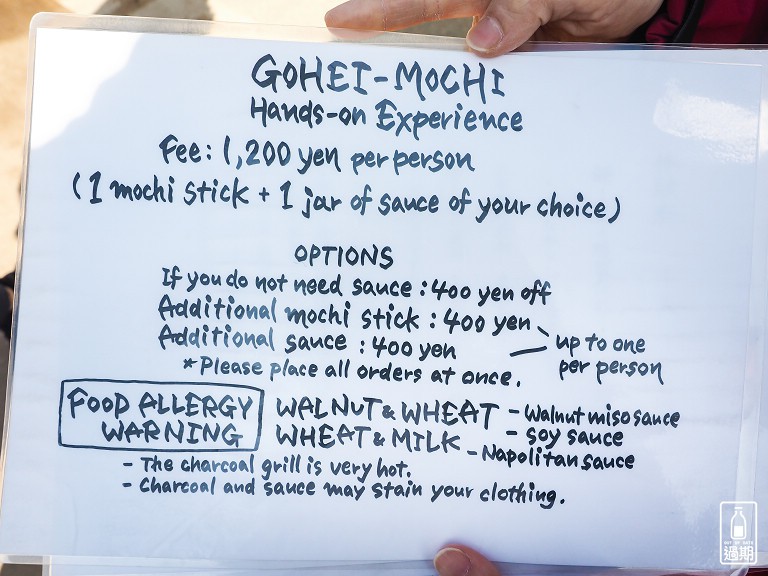 GOHEI-MOCHI
Hands-on Experience
Fee: 1,200 yen per person
(1 mochi stick + 1 jar of sauce of your choice)
OPTIONS
If you do not need sauce : 400 yen off
Additional mochi stick : 400 yen
Additional sauce : 400 yen
up to one
per person
*Please place all orders at once.
FOOD ALLERGY
WARNING
WALNUT & WHEAT - Walnut miso sauce
- Soy sauce
WHEAT & MILK - Napolitan sauce
- The charcoal grill is very hot.
- Charcoal and sauce may stain your clothing.
OUT OF DATE
過期